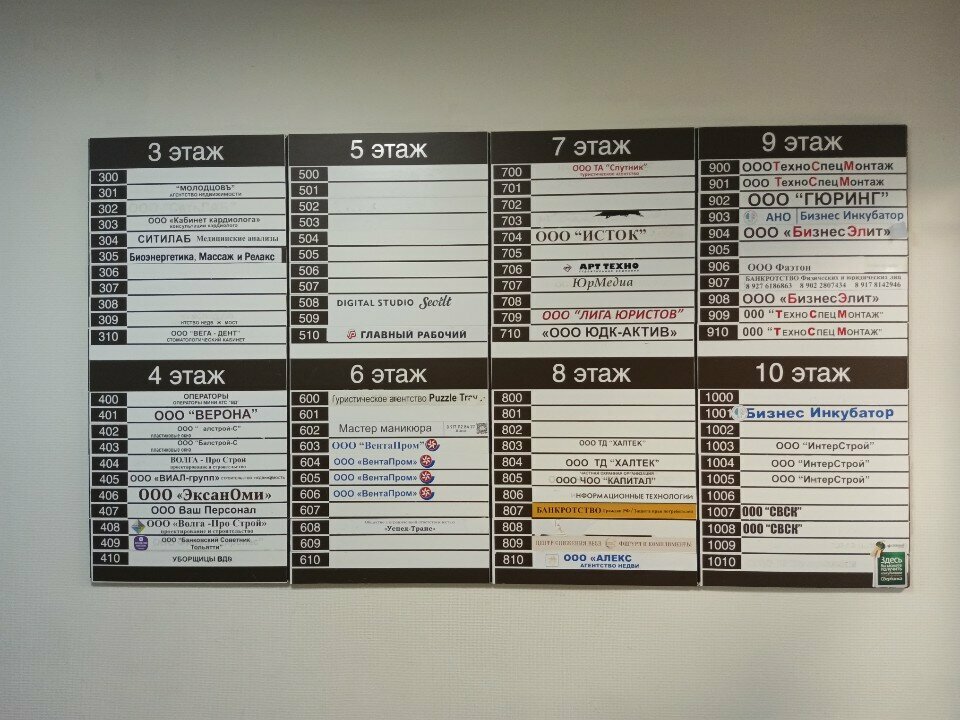 3 этаж
300
301 "МОЛОДЦОВЪ"
агентство недвижимости
302
303 ООО «Кабинет кардиолога»
консультации кардиолога
304 СИТИЛАБ Медицинские анализы
305 Биоэнергетика, Массаж и Релакс
306
307
308
309
310 ООО "ВЕГА - ДЕНТ"
СТОМАТОЛОГИЧЕСКИЙ КАБИНЕТ
5 этаж
500
501
502
503
504
505
506
507
508 DIGITAL STUDIO Sevilt
509
510 ГЛАВНЫЙ РАБОЧИЙ
7 этаж
700 ООО ТА "Спутник"
туристическое агентство
701
702
703
704 ООО "ИСТОК"
705
706 АРТ ТЕХНО
707 ЮрМедиа
708
709 ООО "ЛИГА ЮРИСТОВ"
710 «ООО ЮДК-АКТИВ»
9 этаж
900 ООО ТехноСпецМонтаж
901 ООО ТехноСпецМонтаж
902 ООО "ГЮРИНГ"
903 АНО Бизнес Инкубатор
904 ООО «БизнесЭлит»
905
906 ООО Фаэтон
907 БАНКРОТСТВО Физических и юридических лиц
8 927 6186863 8 902 2807434 8 917 8142946
908 ООО «БизнесЭлит»
909 ООО "ТехноСпецМонтаж"
910 ООО "ТехноСпецМонтаж"
4 этаж
400 ОПЕРАТОРЫ
401 ООО "ВЕРОНА"
402
пластиковые окна
403 ООО "Балстрой-С"
пластиковые окна
404 ВОЛГА - Про Строй
проектирование и строительство
405 ООО «ВИАЛ-групп»
406 ООО «ЭксанОми»
407 ООО Ваш Персонал
408 ООО «Волга -Про Строй»
проектирование и строительство
409 ООО "Банковский Советник
Тольятти"
410 УБОРЩИЦЫ ВДВ
6 этаж
600 Туристическое агентство Puzzle
601
602 Мастер маникюра
603 ООО "ВентаПром"
604 ООО «ВентаПром»
605 ООО «ВентаПром»
606 ООО «ВентаПром»
607
608 Общество с ограниченной ответственностью
«Успех-Транс»
609
610
8 этаж
800
801
802
803 ООО ТД "ХАЛТЕК"
804 ООО ТД "ХАЛТЕК"
805 ЧАСТНАЯ ОХРАННАЯ ОРГАНИЗАЦИЯ
ООО ЧОО "КАПИТАЛ"
806 ИНФОРМАЦИОННЫЕ ТЕХНОЛОГИИ
807 БАНКРОТСТВО
808
809 ЦЕНТР СНИЖЕНИЯ ВЕСА ФИГУРА И КОМПЛИМЕНТЫ
810 ООО «АЛЕКС
АГЕНТСТВО НЕДВИ
10 этаж
1000
1001 Бизнес Инкубатор
1002
1003 ООО «ИнтерСтрой»
1004 ООО «ИнтерСтрой»
1005 ООО «ИнтерСтрой»
1006
1007 ООО "СВСК"
1008 ООО "СВСК"
1009
1010
Здесь